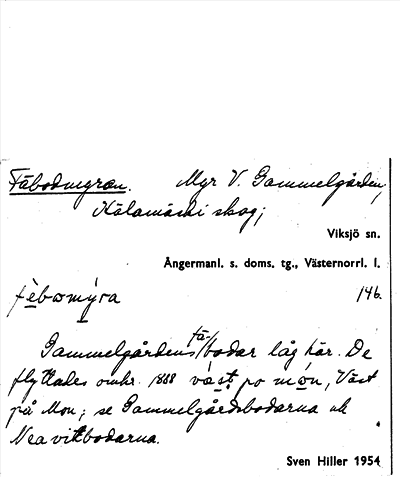 Fäbodmyran. Myr V. Gammelgården,
Kälamärki skog;
Viksjö sn.
Ångermanl. s. doms. tg., Västernorrl. l.
fèbωmýra 146.
Gammelgårdens fä-/bodar låg här. De
flyttades omkr. 1888 väst po mon, Väst
på Mon; se Gammelgårdsbodarna och
Neavikbodarna.
Sven Hiller 1954